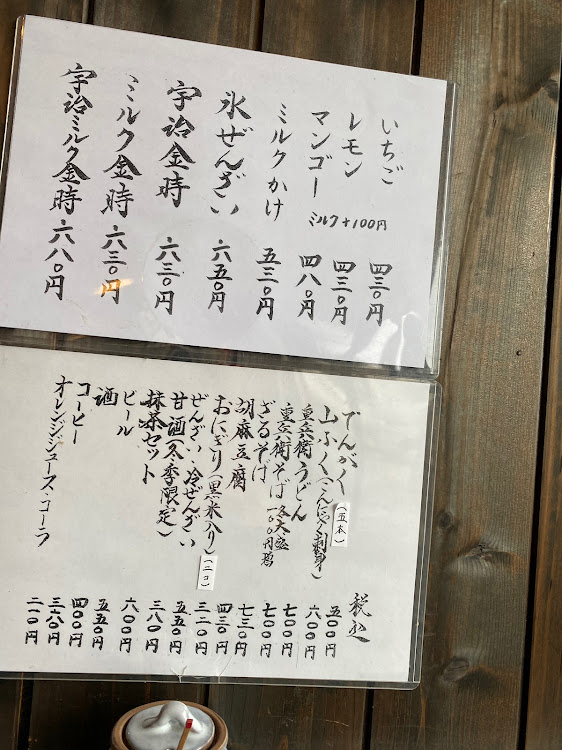 いちご 四三〇円
レモン 四三〇円
マンゴー 四八〇円
ミルク+100円
ミルクかけ 五三〇円
氷ぜんざい 六五〇円
宇治金時 六三〇円
ミルク金時 六三〇円
宇治ミルク金時 六八〇円
税込
でんがく(五本) 五〇〇円
山ふく(こんにゃく刺身) 六〇〇円
重兵衛うどん 七〇〇円
重兵衛そば 七〇〇円
各大盛
一〇〇円増
ざるそば 七三〇円
胡麻豆腐 四三〇円
おにぎり(黒米入り)(二コ) 三二〇円
ぜんざい・冷ぜんざい 五五〇円
甘酒(冬季限定) 三八〇円
抹茶セット 六〇〇円
ビール 五五〇円
酒 四〇〇円
コーヒー 三六〇円
オレンジジュース・コーラ 二一〇円